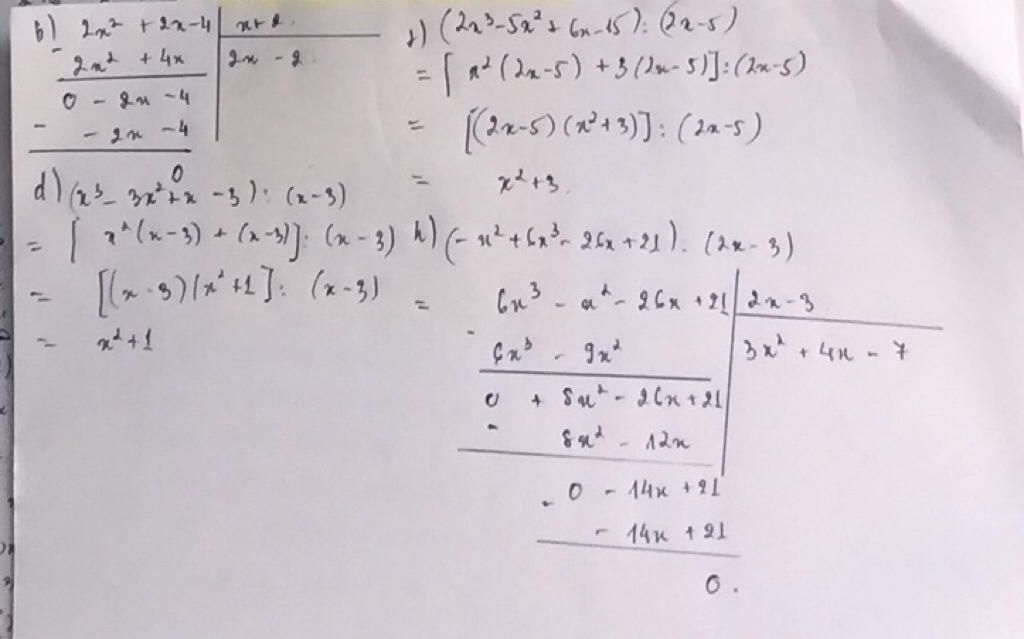 b) 2x² + 2x - 4 | x + 2
- 2x² + 4x | 2x - 2
0 - 2x - 4
- - 2x - 4
0
d) (x³ - 3x² + x - 3) : (x - 3)
= [x²(x - 3) + (x - 3)] : (x - 3)
= [(x - 3)(x² + 1] : (x - 3)
= x² + 1
f) (2x³ - 5x² + 6x - 15) : (2x - 5)
= [x²(2x - 5) + 3(2x - 5)] : (2x - 5)
= [(2x - 5)(x² + 3)] : (2x - 5)
= x² + 3.
h) (- x² + 6x³ - 26x + 21) : (2x - 3)
= 6x³ - x² - 26x + 21 | 2x - 3
- 6x³ - 9x² | 3x² + 4x - 7
0 + 8x² - 26x + 21
- 8x² - 12x
0 - 14x + 21
- - 14x + 21
0.